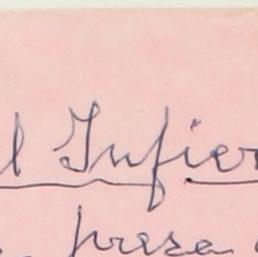 l Infier
presa